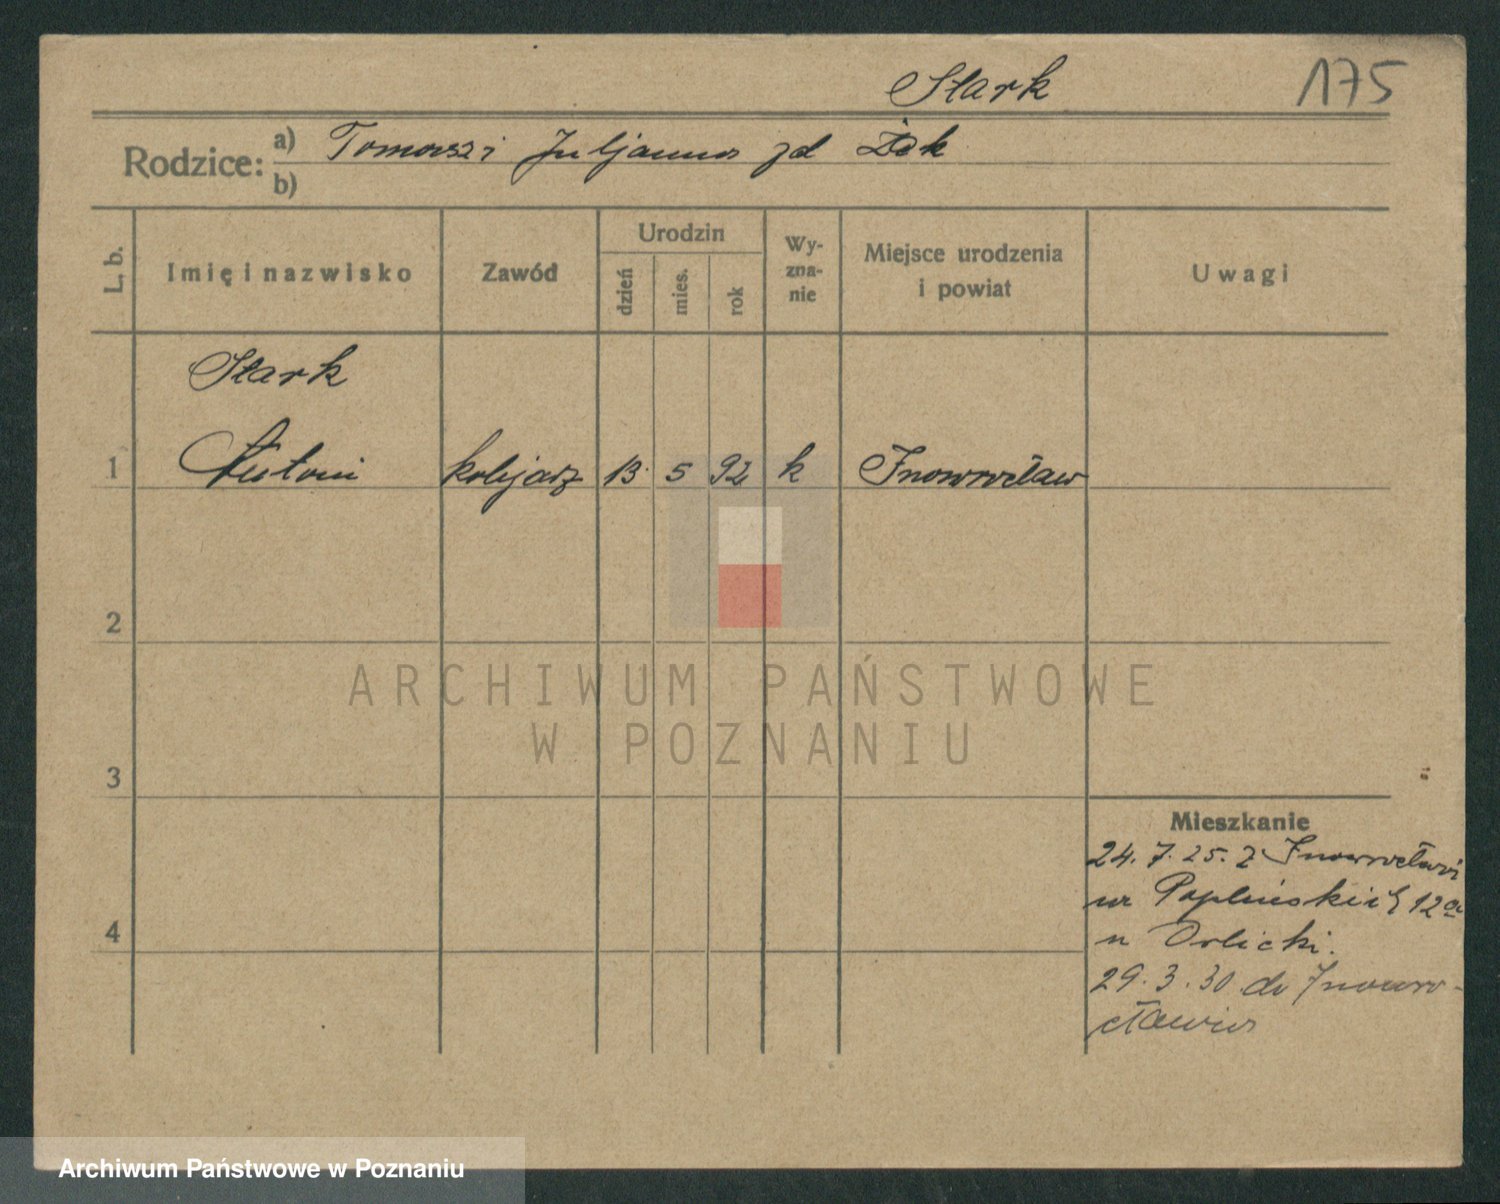 Stark 175
Rodzice: a) Tomasz i Juljanna zd Żak
b)
L. b. Imię i nazwisko Zawód Urodzin dzień mies. rok Wy-zna-nie Miejsce urodzenia i powiat Uwagi
Stark
1 Antoni kolejarz 13 5 92 k Inowrocław
2
3
4
Mieszkanie
24. 7. 25. z Inowrocławi
ur Poplińskich 12a
u Orlicki.
29. 3. 30 do Inowro-
cławia
ARCHIWUM PAŃSTWOWE
W POZNANIU
Archiwum Państwowe w Poznaniu